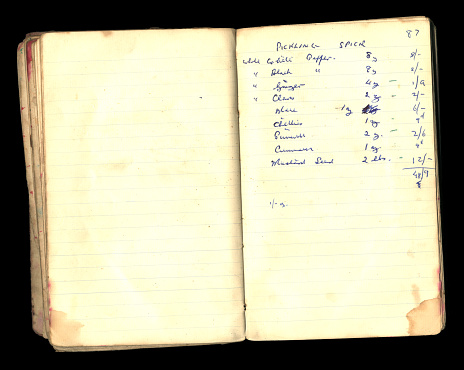 87
PICKLING SPICE
White Pepper 8 oz 8/-
" Black " 8 oz 8/-
" Ginger 4 oz - 1/9
" Cloves 2 oz - 2/-
Mace 1 oz 6/-
Chillies 1 oz - 9d
2 oz - 2/6
1 oz 9d
Mustard Seed 2 lbs. - 12/-
8
1/- oz.